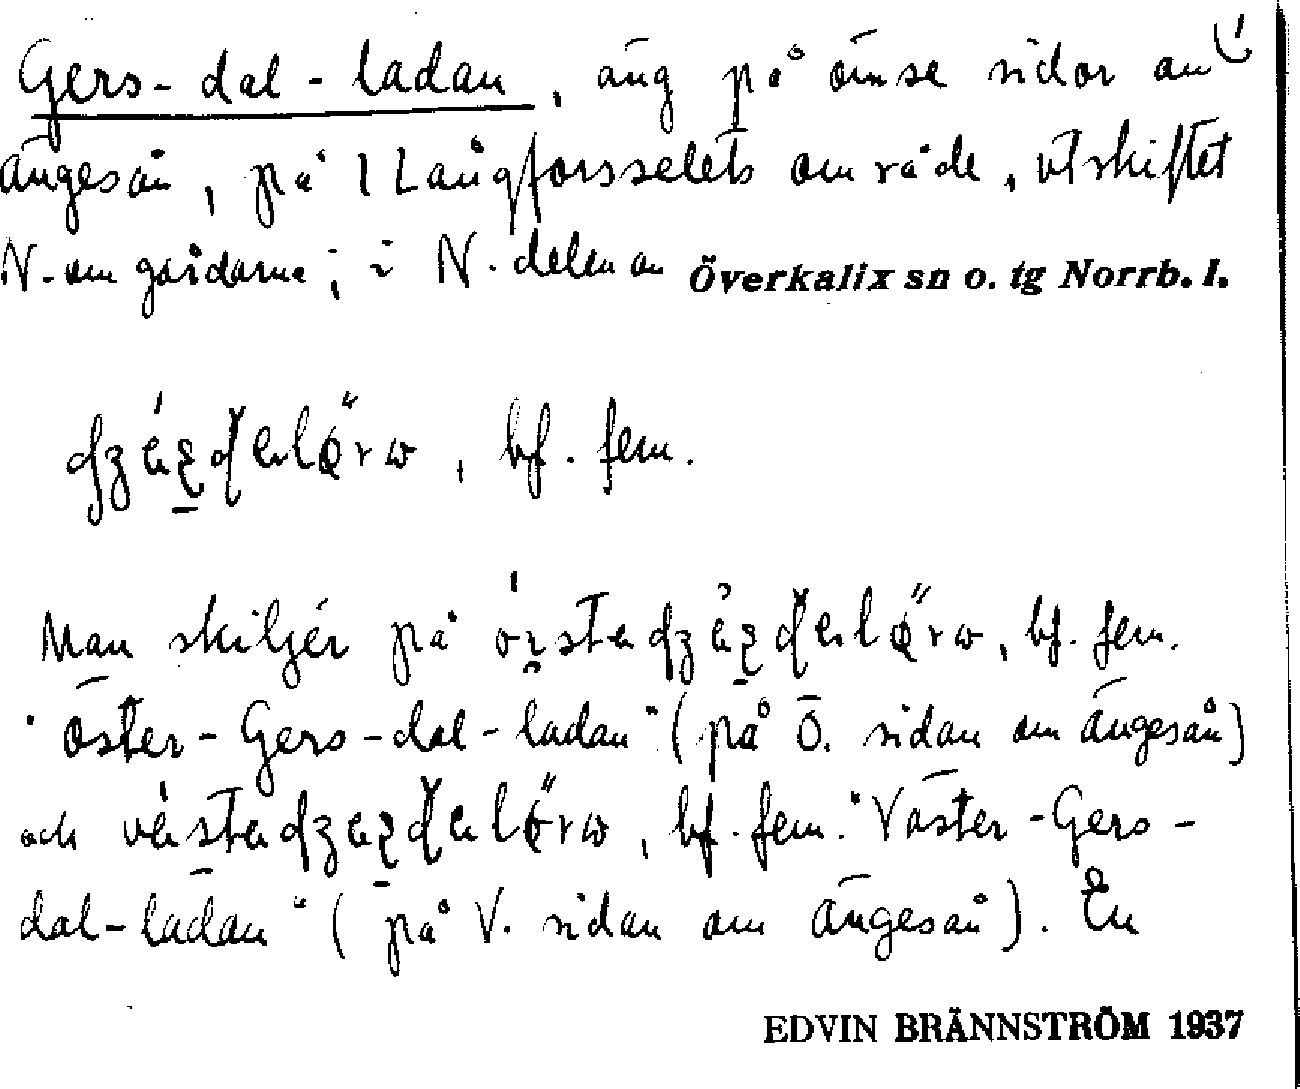 Gers-dal-ladan, äng på ömse sidor om
Ängesån, på 1 Långforsselets område, utskiftet
N. om gårdarna; i N. delen av Överkalix sn o. tg Norrb. l.
, bf. fem.
Man skiljer på , bf. fem.
"Öster-Gers-dal-ladan" (på Ö. sidan om Ängesån)
och , bf. fem. "Väster-Gers-
dal-ladan" (på V. sidan om Ängesån). En
EDVIN BRÄNNSTRÖM 1937